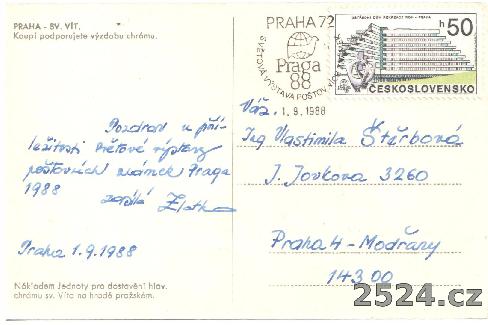 PRAHA - SV. VÍT.
Koupí podporujete výzdobu chrámu.
PRAHA 72
Praga
88
SVĚTOVÁ VÝSTAVA POŠTOVNÍCH ZNÁMEK
h 50
ČESKOSLOVENSKO
Váž. 1.9.1988
Ing Vlastimila Štěrbová
J. Jovkova 3260
Praha 4 - Modřany
143 00
Pozdrav u pří-
ležitosti světové výstavy
poštovních známek Praga
1988
zasílá Zlatka
Praha 1.9.1988
Nákladem Jednoty pro dostavění hlav.
chrámu sv. Víta na hradě pražském.
2524.cz